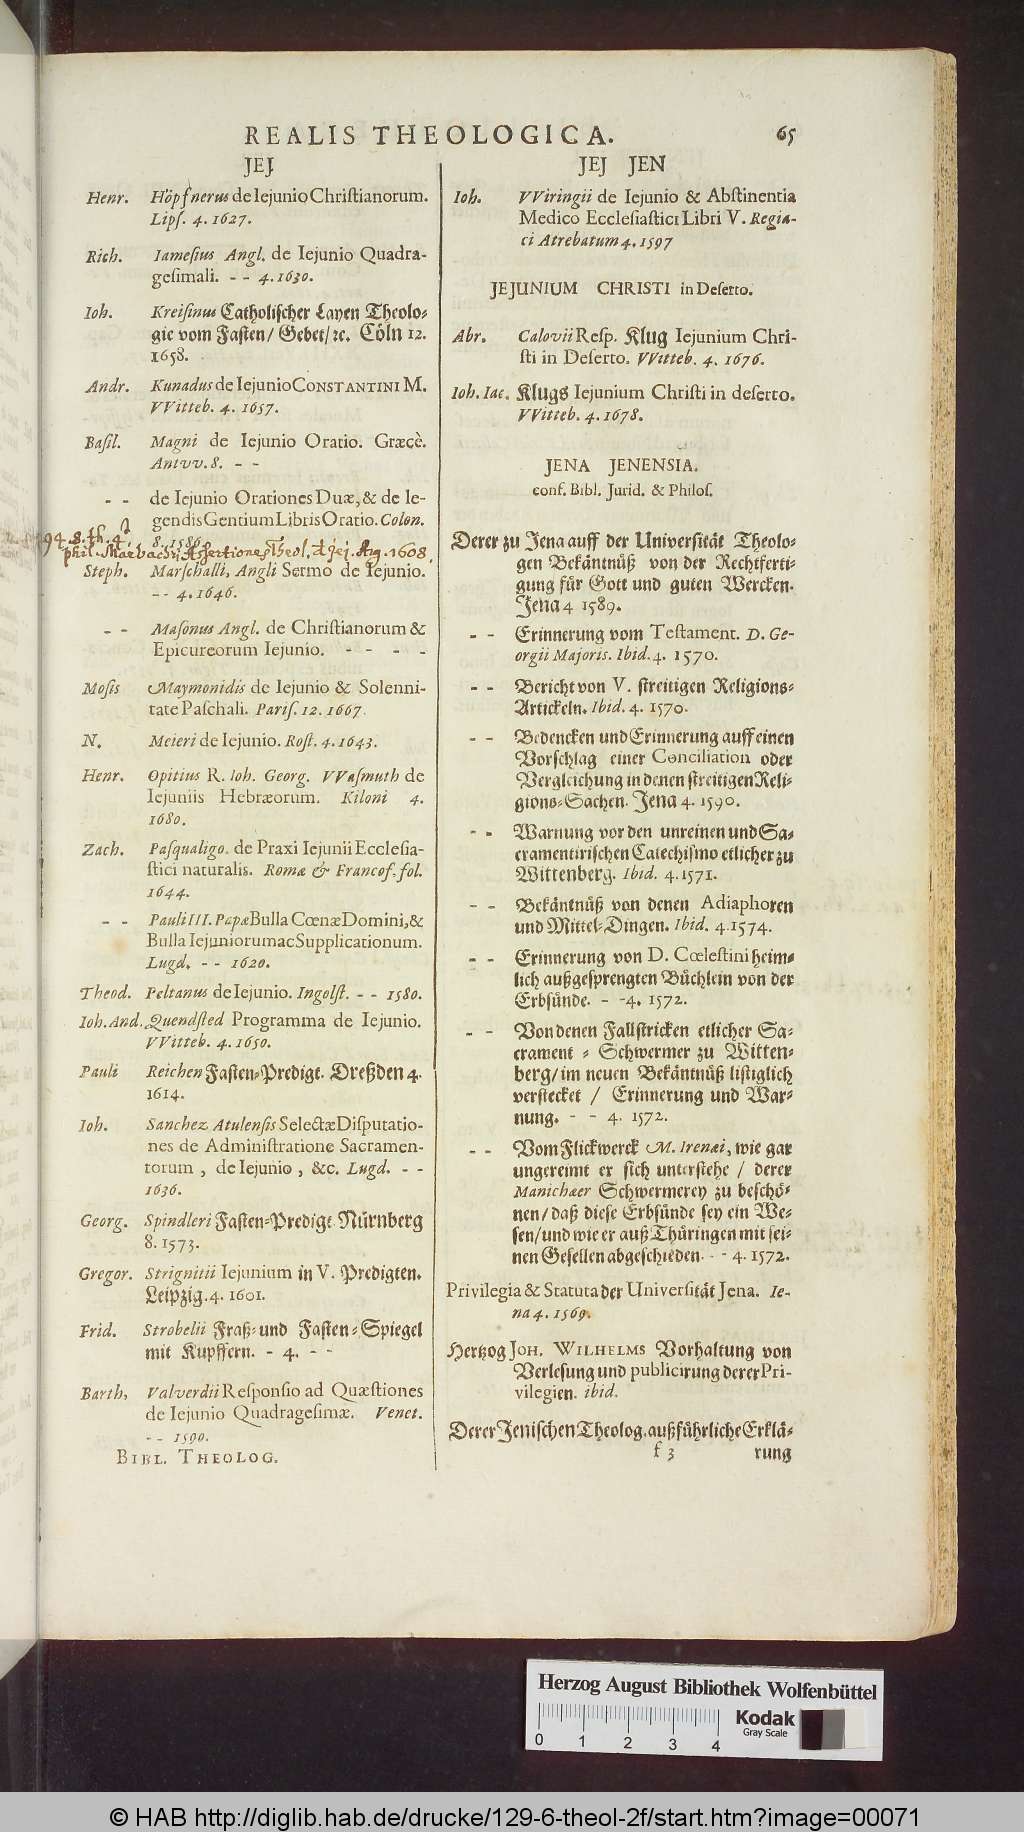 REALIS THEOLOGICA. 65
JEJ
Henr. Höpfnerus de Iejunio Christianorum.
Lips. 4. 1627.
Rich. Iamesius Angl. de Iejunio Quadra-
gesimali. - - 4. 1630.
Ioh. Kreisinus Catholischer Layen Theolo-
gie vom Fasten/ Gebet/ ꝛc. Cöln 12.
1658.
Andr. Kunadus de Iejunio CONSTANTINI M.
VVitteb. 4. 1657.
Basil. Magni de Iejunio Oratio. Græcè.
Antvv. 8. - -
- - de Iejunio Orationes Duæ, & de le-
gendis Gentium Libris Oratio. Colon.
8. 1586.
94. 8. th. 4°
phil. Marbachi, Assertiones Theol. d jej. Arg. 1608.
Steph. Marschalli, Angli Sermo de Iejunio.
- - 4. 1646.
- - Masonus Angl. de Christianorum &
Epicureorum Iejunio. - - - -
Mosis Maymonidis de Iejunio & Solenni-
tate Paschali. Paris. 12. 1667.
N. Meieri de Iejunio. Rost. 4. 1643.
Henr. Opitius R. Ioh. Georg. VVasmuth de
Iejuniis Hebræorum. Kiloni 4.
1680.
Zach. Pasqualigo. de Praxi Iejunii Ecclesia-
stici naturalis. Romæ & Francof. fol.
1644.
- - Pauli III. Papæ Bulla Cœnæ Domini, &
Bulla Iejuniorum ac Supplicationum.
Lugd. - - 1620.
Theod. Peltanus de Iejunio. Ingolst. - - 1580.
Ioh. And. Quendsted Programma de Iejunio.
VVitteb. 4. 1650.
Pauli Reichen Fasten-Predigt. Dreßden 4.
1614.
Ioh. Sanchez Atulensis Selectæ Disputatio-
nes de Administratione Sacramen-
torum, de Iejunio, &c. Lugd. - -
1636.
Georg. Spindleri Fasten-Predigt. Nürnberg
8. 1573.
Gregor. Strignitii Iejunium in V. Predigten.
Leipzig. 4. 1601.
Frid. Strobelii Fraß- und Fasten-Spiegel
mit Kupffern. - 4. - -
Barth, Valverdii Responsio ad Quæstiones
de Iejunio Quadragesimæ. Venet.
- - 1590.
BIBL. THEOLOG.
JEJ JEN
Ioh. VViringii de Iejunio & Abstinentia
Medico Ecclesiastici Libri V. Regia-
ci Atrebatum 4. 1597
JEJUNIUM CHRISTI in Deserto.
Abr. Calovii Resp. Klug Iejunium Chri-
sti in Deserto. VVitteb. 4. 1676.
Ioh. Iac. Klugs Iejunium Christi in deserto.
VVitteb. 4. 1678.
JENA JENENSIA.
conf. Bibl. Jurid. & Philos.
Derer zu Jena auff der Universität Theolo-
gen Bekäntnüß von der Rechtferti-
gung für Gott und guten Wercken.
Jena 4 1589.
- - Erinnerung vom Testament. D. Ge-
orgii Majoris. Ibid. 4. 1570.
- - Bericht von V. streitigen Religions-
Artickeln. Ibid. 4. 1570.
- - Bedencken und Erinnerung auff einen
Vorschlag einer Conciliation oder
Vergleichung in denen streitigen Reli-
gions-Sachen. Jena 4. 1590.
- - Warnung vor den unreinen und Sa-
cramentirischen Catechismo etlicher zu
Wittenberg. Ibid. 4. 1571.
- - Bekäntnüß von denen Adiaphoren
und Mittel-Dingen. Ibid. 4. 1574.
- - Erinnerung von D. Cœlestini heim-
lich außgesprengten Büchlein von der
Erbsünde. - - 4. 1572.
- - Von denen Fallstricken etlicher Sa-
crament-Schwermer zu Witten-
berg/ im neuen Bekäntnüß listiglich
verstecket / Erinnerung und War-
nung. - - 4. 1572.
- - Vom Flickwerck M. Irenæi, wie gar
ungereimt er sich unterstehe / derer
Manichæer Schwermerey zu beschö-
nen/ daß diese Erbsünde sey ein We-
sen/ und wie er auß Thüringen mit sei-
nen Gesellen abgeschieden. - - 4. 1572.
Privilegia & Statuta der Universität Jena. Ie-
na 4. 1569.
Hertzog JOH. WILHELMS Vorhaltung von
Verlesung und publicirung derer Pri-
vilegien. ibid.
Derer Jenischen Theolog. außführliche Erklä-
f 3 rung
Herzog August Bibliothek Wolfenbüttel
Kodak
Gray Scale
0 1 2 3 4
© HAB http://diglib.hab.de/drucke/129-6-theol-2f/start.htm?image=00071